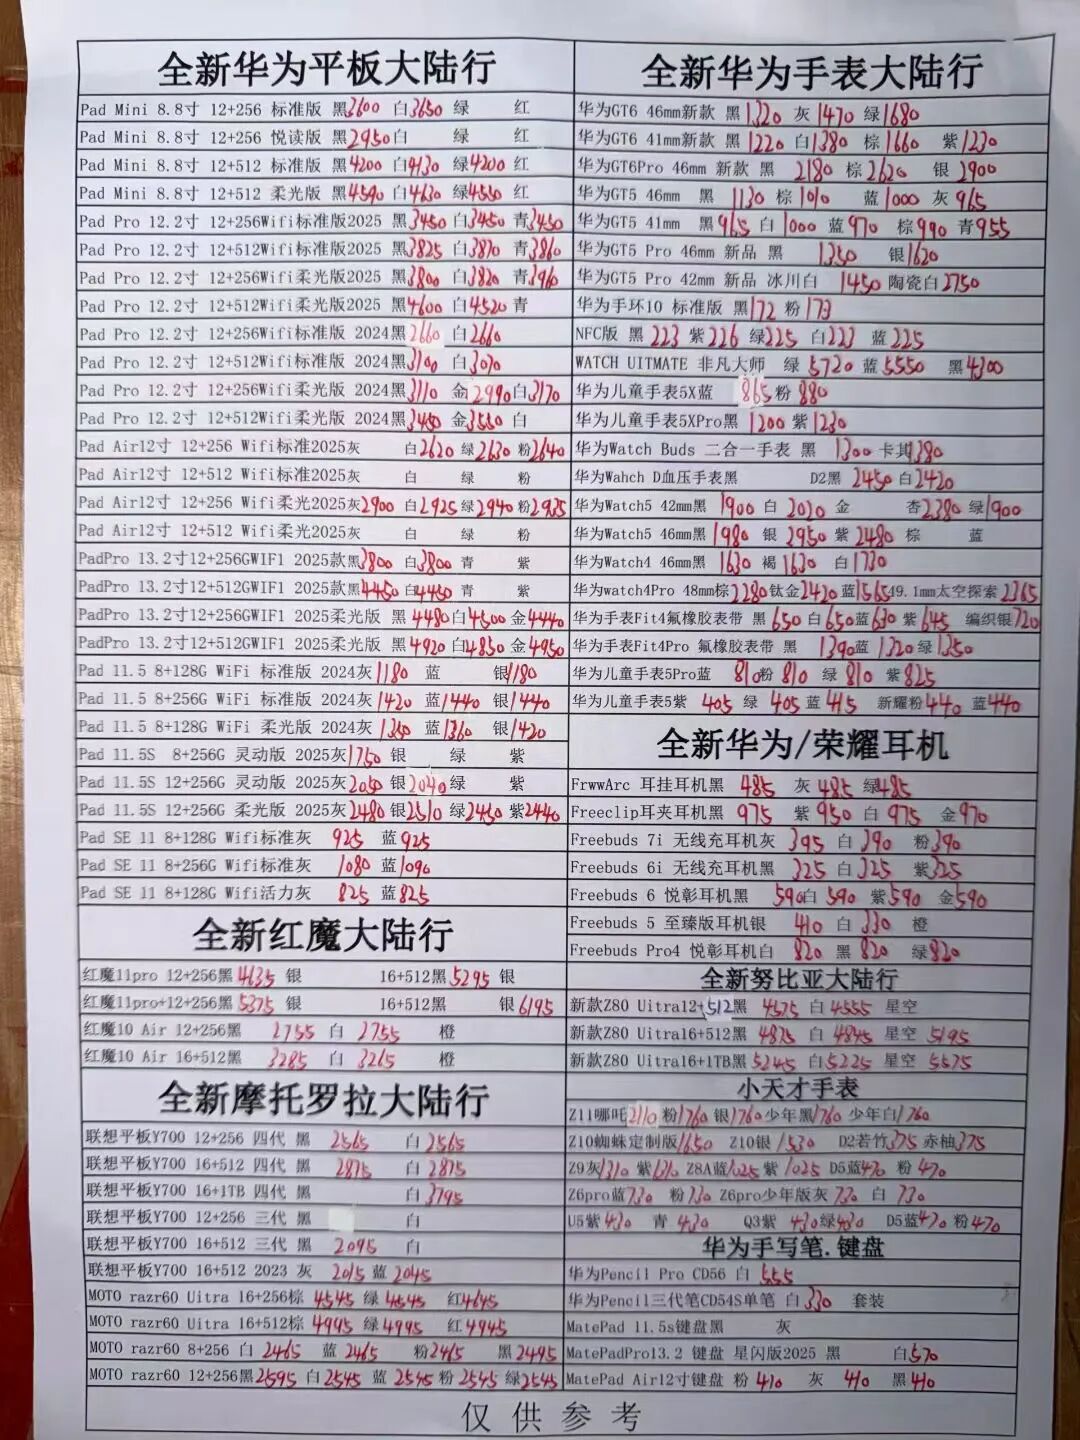 全新华为平板大陆行
Pad Mini 8.8寸 12+256 标准版 黑3600 白3650 绿 红
Pad Mini 8.8寸 12+256 悦读版 黑2950白 绿 红
Pad Mini 8.8寸 12+512 标准版 黑4200 白4130 绿4200 红
Pad Mini 8.8寸 12+512 柔光版 黑4590 白4630 绿4550 红
Pad Pro 12.2寸 12+256Wifi标准版2025 黑3450 白3450 青3450
Pad Pro 12.2寸 12+512Wifi标准版2025 黑3825 白3810 青3860
Pad Pro 12.2寸 12+256Wifi柔光版2025 黑3800 白3820 青3960
Pad Pro 12.2寸 12+512Wifi柔光版2025 黑4600 白4520 青
Pad Pro 12.2寸 12+256Wifi标准版 2024黑2660 白2660
Pad Pro 12.2寸 12+512Wifi标准版 2024黑3100 白3030
Pad Pro 12.2寸 12+256Wifi柔光版 2024黑3110 金2990白3170
Pad Pro 12.2寸 12+512Wifi柔光版 2024黑3450 金3550 白
Pad Air12寸 12+256 Wifi标准2025灰 白2620 绿2630 粉2640
Pad Air12寸 12+512 Wifi标准2025灰 白 绿 粉
Pad Air12寸 12+256 Wifi柔光2025灰2900 白2925 绿2940 粉2925
Pad Air12寸 12+512 Wifi柔光2025灰 白 绿 粉
PadPro 13.2寸12+256GWIF1 2025款黑3800 白3800 青 紫
PadPro 13.2寸12+512GWIF1 2025款黑4450 白4450 青 紫
PadPro 13.2寸12+256GWIF1 2025柔光版 黑4480白4500 金4440
PadPro 13.2寸12+512GWIF1 2025柔光版 黑4920 白4850 金4950
Pad 11.5 8+128G WiFi 标准版 2024灰1180 蓝 银1180
Pad 11.5 8+256G WiFi 标准版 2024灰1420 蓝1440 银1440
Pad 11.5 8+128G WiFi 柔光版 2024灰1350 蓝1360 银1420
Pad 11.5S 8+256G 灵动版 2025灰1750 银 绿 紫
Pad 11.5S 12+256G 灵动版 2025灰2050 银2040 绿 紫
Pad 11.5S 12+256G 柔光版 2025灰2480 银2510 绿2450 紫2440
Pad SE 11 8+128G Wifi标准灰 925 蓝925
Pad SE 11 8+256G Wifi标准灰 1080 蓝1090
Pad SE 11 8+128G Wifi活力灰 825 蓝825
全新红魔大陆行
红魔11pro 12+256黑4635 银 16+512黑5295 银
红魔11pro+12+256黑5375 银 16+512黑 银6195
红魔10 Air 12+256黑 2755 白 2755 橙
红魔10 Air 16+512黑 3285 白 3265 橙
全新摩托罗拉大陆行
联想平板Y700 12+256 四代 黑 2565 白2565
联想平板Y700 16+512 四代 黑 2875 白2875
联想平板Y700 16+1TB 四代 黑 白3795
联想平板Y700 12+256 三代 黑 白
联想平板Y700 16+512 三代 黑 2095 白
联想平板Y700 16+512 2023 灰 2015 蓝2045
MOTO razr60 Uitra 16+256棕 4545 绿 4545 红4645
MOTO razr60 Uitra 16+512棕 4995 绿 4995 红4945
MOTO razr60 8+256 白 2465 蓝 2465 粉2465 黑2495
MOTO razr60 12+256黑2595 白2545 蓝 2545 粉 2545 绿2545
全新华为手表大陆行
华为GT6 46mm新款 黑1320 灰1470 绿1680
华为GT6 41mm新款 黑1220 白1380 棕1660 紫1230
华为GT6Pro 46mm 新款 黑 2180 棕2620 银2900
华为GT5 46mm 黑 1130 棕1010 蓝1000 灰965
华为GT5 41mm 黑965 白1000 蓝970 棕990 青955
华为GT5 Pro 46mm 新品 黑 1350 银1620
华为GT5 Pro 42mm 新品 冰川白 1450 陶瓷白2750
华为手环10 标准版 黑172 粉173
NFC版 黑 223 紫226 绿225 白223 蓝225
WATCH UITMATE 非凡大师 绿 5720 蓝5550 黑4300
华为儿童手表5X蓝 865 粉 880
华为儿童手表5XPro黑 1200 紫1230
华为Watch Buds 二合一手表 黑 1300 卡其1380
华为Wahch D血压手表黑 D2黑 2450 白2420
华为Watch5 42mm黑 1900 白 2020 金 杏2380 绿1900
华为Watch5 46mm黑1980 银 2950 紫 2480 棕 蓝
华为Watch4 46mm黑 1630 褐1630 白1730
华为watch4Pro 48mm棕2280钛金2420 蓝1565 49.1mm太空探索2365
华为手表Fit4氟橡胶表带 黑650 白650蓝630 紫645 编织银720
华为手表Fit4Pro 氟橡胶表带 黑 1390蓝 1320绿1350
华为儿童手表5Pro蓝 810粉 810 绿 810 紫825
华为儿童手表5紫 405 绿 405 蓝 415 新耀粉440 蓝440
全新华为/荣耀耳机
FrwwArc 耳挂耳机黑 485 灰 485 绿485
Freeclip耳夹耳机黑 975 紫 950 白 975 金970
Freebuds 7i 无线充耳机灰 395 白 390 粉390
Freebuds 6i 无线充耳机黑 325 白325 紫325
Freebuds 6 悦彰耳机黑 590白 590 紫590 金590
Freebuds 5 至臻版耳机银 410 白 330 橙
Freebuds Pro4 悦彰耳机白 820 黑 820 绿820
全新努比亚大陆行
新款Z80 Uitra12+512黑 4575 白4555 星空
新款Z80 Uitra16+512黑 4875 白 4845 星空 5195
新款Z80 Uitra16+1TB黑5245 白5225 星空 5575
小天才手表
Z11哪吒2110粉1760 银1760少年黑1760 少年白1760
Z10蜘蛛定制版1650 Z10银1530 D2若竹375 赤柚375
Z9灰1310 紫1310 Z8A蓝1025紫1025 D5蓝470 粉 470
Z6pro蓝730 粉730 Z6pro少年版灰 730 白 730
U5紫430 青 430 Q3紫 430绿430 D5蓝470 粉470
华为手写笔.键盘
华为Pencil Pro CD56 白 555
华为Pencil三代笔CD54S单笔 白330 套装
MatePad 11.5s键盘黑 灰
MatePadPro13.2 键盘 星闪版2025 黑 白570
MatePad Air12寸键盘 粉 410 灰 410 黑410
仅供参考